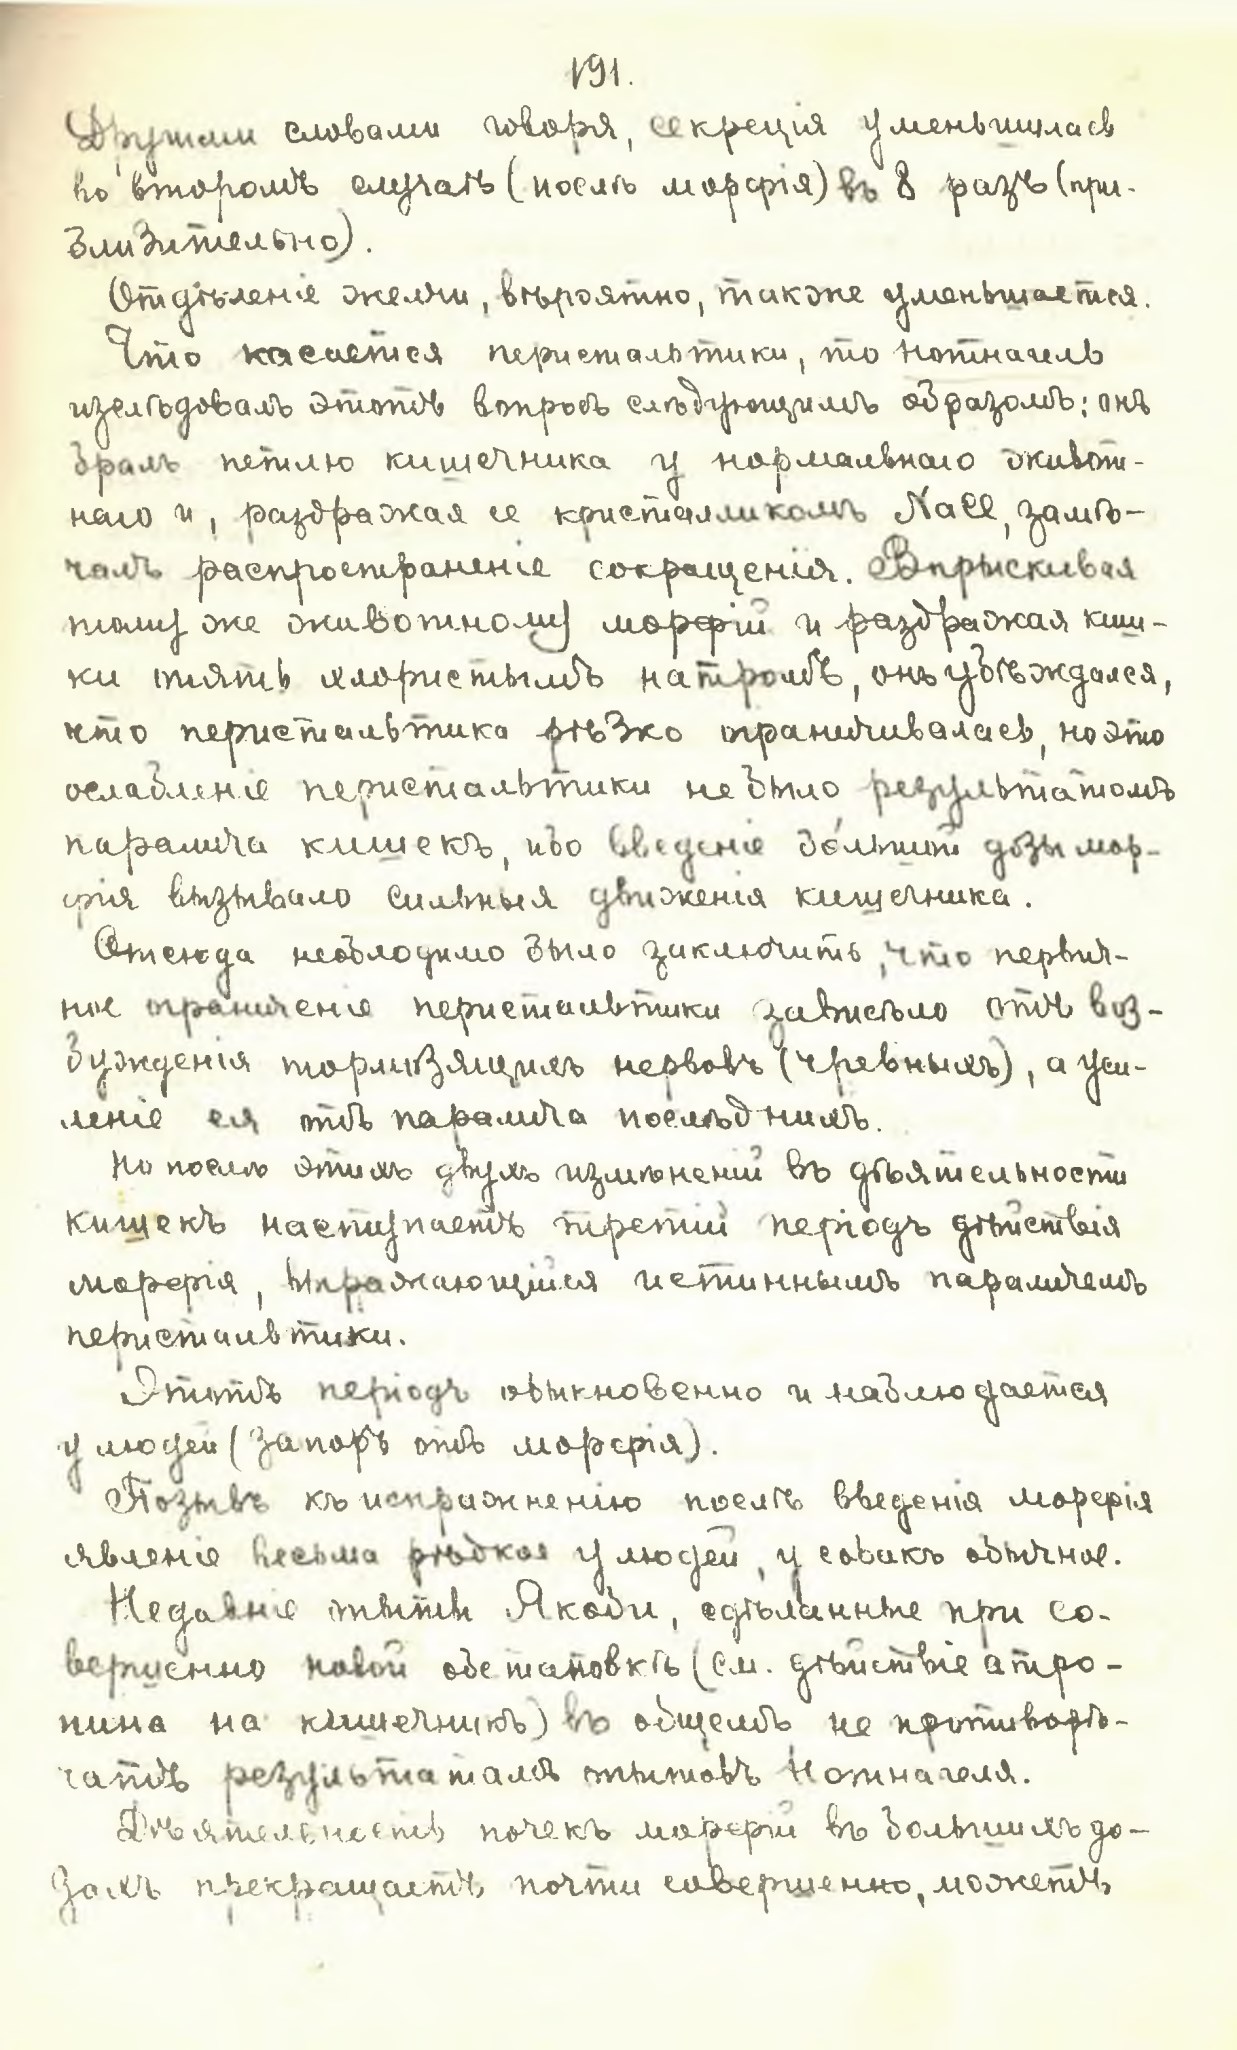 191.
Другими словами говоря, секреція уменьшилась
во второмъ случаѣ (послѣ морфія) въ 8 разъ (при-
близительно).
Отдѣленіе желчи, вѣроятно, также уменьшается.
Что касается перистальтики, то Нотнагель
изслѣдовалъ этотъ вопросъ слѣдующимъ образомъ: онъ
бралъ петлю кишечника у нормальнаго живот-
наго и, раздражая ее кристалликомъ NaCl, замѣ-
чалъ распространеніе сокращенія. Впрыскивая
тому же животному морфій и раздражая киш-
ки опять хлористымъ натромъ, онъ убѣждался,
что перистальтика рѣзко ограничивалась, но это
ослабленіе перистальтики не было результатомъ
паралича кишекъ, ибо введеніе бо́льшей дозы мор-
фія вызывало сильныя движенія кишечника.
Отсюда необходимо было заключить, что первич-
ное ограниченіе перистальтики зависѣло отъ воз-
бужденія тормозящихъ нервовъ (чревныхъ), а уси-
леніе ея отъ паралича послѣднихъ.
Но послѣ этихъ двухъ измѣненій въ дѣятельности
кишекъ наступаетъ третій періодъ дѣйствія
морфія, выражающійся истиннымъ параличемъ
перистальтики.
Этотъ періодъ обыкновенно и наблюдается
у людей (запоръ отъ морфія).
Позывъ къ испражненію послѣ введенія морфія
явленіе весьма рѣдкое у людей, у собакъ обычное.
Недавніе опыты Якоби, сдѣланные при со-
вершенно новой обстановкѣ (см. дѣйствіе атро-
пина на кишечникъ) въ общемъ не противорѣ-
чатъ результатамъ опытовъ Нотнагеля.
Дѣятельность почекъ морфій въ большихъ до-
захъ прекращаетъ почти совершенно, можетъ